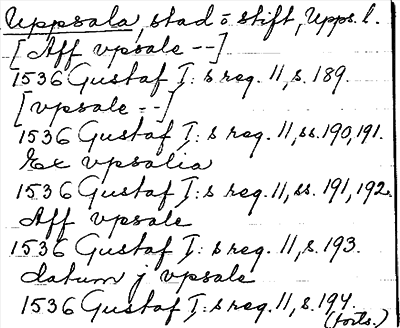 Uppsala, stad o stift, Upps. l.
[Aff vpsale --]
1536 Gustaf I: s reg. 11, s. 189.
[vpsale --]
1536 Gustaf I: s reg. 11, ss. 190, 191.
Ex vpsalia
1536 Gustaf I: s reg. 11, ss. 191, 192.
Aff vpsale
1536 Gustaf I: s reg. 11, s. 193.
datum j vpsale
1536 Gustaf I: s reg. 11, s. 194.
(forts.)